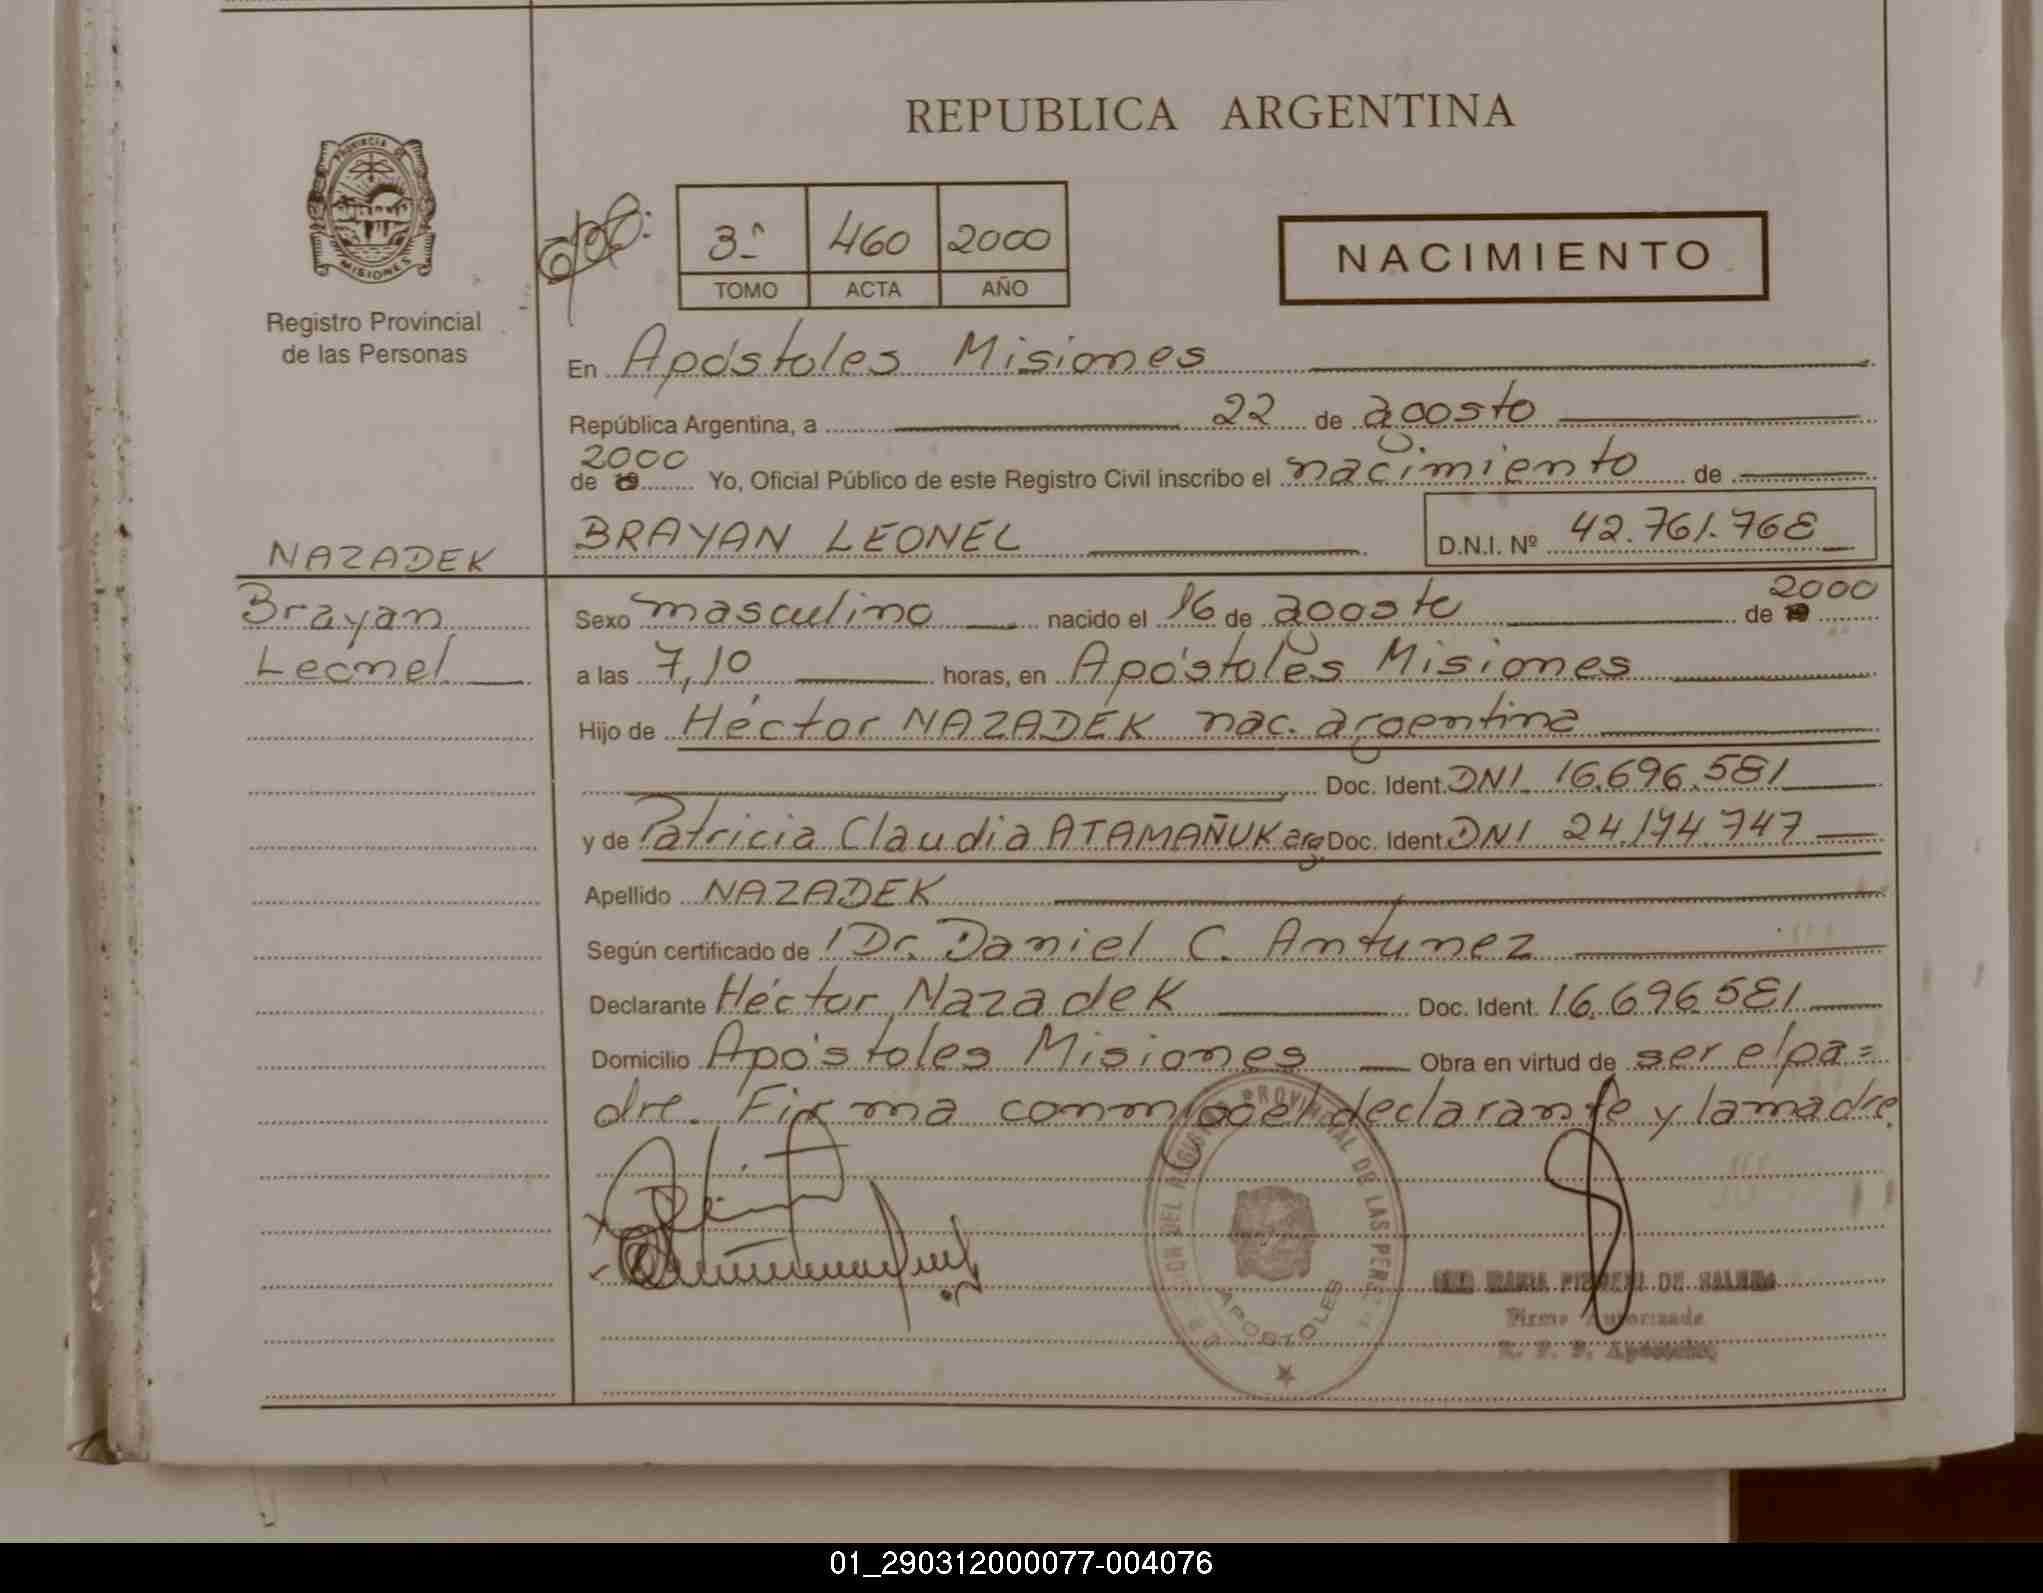 REPUBLICA ARGENTINA
PROVINCIA DE
MISIONES
Registro Provincial
de las Personas
3ª 460 2000
TOMO ACTA AÑO
NACIMIENTO
En Apóstoles Misiones
República Argentina, a 22 de agosto
2000
de 19 Yo, Oficial Público de este Registro Civil inscribo el nacimiento de
BRAYAN LEONEL D.N.I. Nº 42.761.768
NAZADEK
Brayan
Leonel
2000
Sexo masculino nacido el 16 de agosto de 19
a las 7,10 horas, en Apóstoles Misiones
Hijo de Héctor NAZADEK nac. argentina
Doc. Ident. DNI 16.696.581
y de Patricia Claudia ATAMAÑUK arg Doc. Ident. DNI 24.174.747
Apellido NAZADEK
Según certificado de Dr. Daniel C. Antunez
Declarante Héctor Nazadek Doc. Ident. 16.696.581
Domicilio Apóstoles Misiones Obra en virtud de ser el pa=
dre. Firma conmigo el declarante y la madre.
REGISTRO PROVINCIAL DE LAS PERS
APOSTOLES
MARIA DE
Firma Autorizada
R. P. P. Apóstoles
01_290312000077-004076